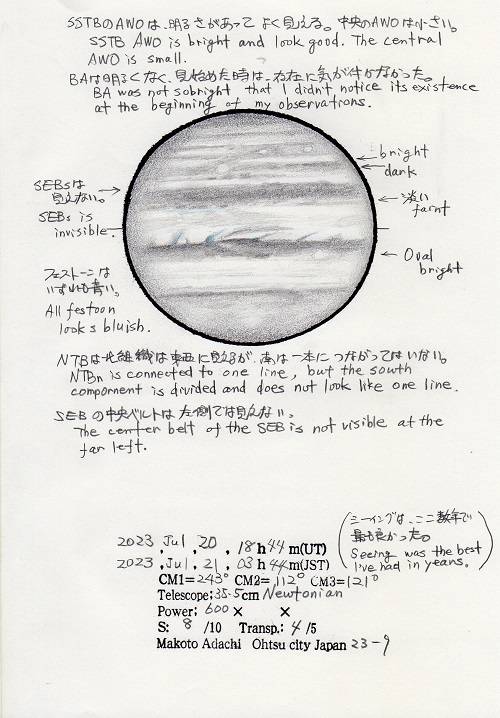 SSTBのAWOは、明るさがあってよく見える。中央のAWOは小さい。
SSTB AWO is bright and look good. The central
AWO is small.
BAは明るくなく、見始めた時は、存在に気が付かなかった。
BA was not sobright that I didn't notice its existence
at the beginning of my observations.
bright
dark
SEBsは
見えない。
SEBs is
invisible.
淡い
faint
Oval
bright
フェストーンは
いずれも青い。
All festoon
looks bluish.
NTBは北組織は東西に見えるが、南は一本につながってはいない。
NTBn is connected to one line, but the south
component is divided and does not look like one line.
SEBの中央ベルトは左側では見えない。
The center belt of the SEB is not visible at the
far left.
(シーイングは、ここ数年で
最も良かった。
Seeing was the best
I've had in years.)
2023, Jul, 20, 18h44m(UT)
2023, Jul, 21, 03h44m(JST)
CM1=243° CM2=112° CM3=121°
Telescope; 35.5cm Newtonian
Power; 600× ×
S: 8 /10 Transp.: 4 /5
Makoto Adachi Ohtsu city Japan 23-9